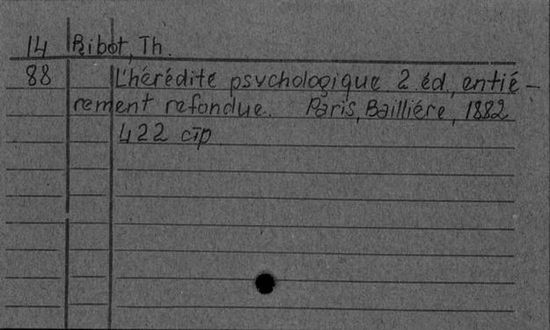 14 Ribot, Th.
88 L'hérédité psychologique 2 éd., entié-
rement refondue. Paris, Bailliére, 1882
422 стр